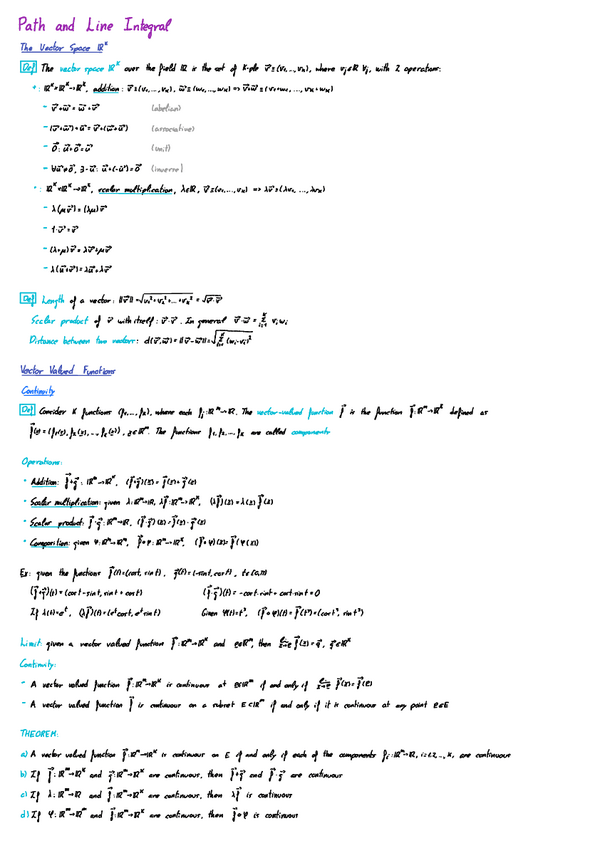 Path and Line Integral
The Vector Space ℝᵏ
Def The vector space ℝᵏ over the field ℝ is the set of K-ple v⃗=(v₁,..,vₖ), where vⱼ∈ℝ ∀j, with 2 operations:
+ : ℝᵏ×ℝᵏ→ℝᵏ, addition: v⃗=(v₁,...,vₖ), w⃗=(w₁,...,wₖ) => v⃗+w⃗=(v₁+w₁,...,vₖ+wₖ)
- v⃗+w⃗ = w⃗+v⃗ (abelian)
- (v⃗+w⃗)+u⃗ = v⃗+(w⃗+u⃗) (associative)
- 0⃗: u⃗+0⃗=u⃗ (unit)
- ∀u⃗≠0⃗, ∃-u⃗: u⃗+(-u⃗)=0⃗ (inverse)
· : ℝᵏ×ℝᵏ→ℝᵏ, scalar multiplication, λ∈ℝ, v⃗=(v₁,...,vₖ) => λv⃗=(λv₁,...,λvₖ)
- λ(μv⃗)=(λμ)v⃗
- 1·v⃗=v⃗
- (λ+μ)v⃗ = λv⃗+μv⃗
- λ(u⃗+v⃗)=λu⃗+λv⃗
Def Length of a vector: ||v⃗||=√(v₁²+v₂²+...+vₖ²) = √(v⃗·v⃗)
Scalar product of v⃗ with itself: v⃗·v⃗. In general v⃗·w⃗ = Σᵢ₌₁ᵏ vᵢwᵢ
Distance between two vectors: d(v⃗,w⃗)=||v⃗-w⃗||=√(Σᵢ₌₁ᵏ(wᵢ-vᵢ)²)
Vector Valued Functions
Continuity
Def Consider K functions (f₁,...,fₖ), where each fⱼ:ℝᵐ→ℝ. The vector-valued function f⃗ is the function f⃗:ℝᵐ→ℝᵏ defined as
f⃗(x)=(f₁(x),f₂(x),...,fₖ(x)), x∈ℝᵐ. The functions f₁,f₂,...,fₖ are called components
Operations:
· Addition: f⃗+g⃗: ℝᵐ→ℝᵏ, (f⃗+g⃗)(x)=f⃗(x)+g⃗(x)
· Scalar multiplication: given λ:ℝᵐ→ℝ, λf⃗:ℝᵐ→ℝᵏ, (λf⃗)(x)=λ(x)f⃗(x)
· Scalar product: f⃗·g⃗:ℝᵐ→ℝ, (f⃗·g⃗)(x)=f⃗(x)·g⃗(x)
· Composition: given φ:ℝᵐ→ℝᵐ, f⃗∘φ:ℝᵐ→ℝᵏ, (f⃗∘φ)(x)=f⃗(φ(x))
Ex: given the functions f⃗(t)=(cost, sint), g⃗(t)=(-sint,cost), t∈[0,π]
(f⃗+g⃗)(t)=(cost-sint, sint+cost) (f⃗·g⃗)(t)=-cost·sint+cost·sint=0
If λ(t)=eᵗ, (λf⃗)(t)=(eᵗcost, eᵗsint) Given φ(t)=t³, (f⃗∘φ)(t)=f⃗(t³)=(cost³, sint³)
Limit: given a vector valued function f⃗:ℝᵐ→ℝᵏ and p∈ℝᵐ, then lim x→p f⃗(x)=q⃗, q⃗∈ℝᵏ
Continuity:
- A vector valued function f⃗:ℝᵐ→ℝᵏ is continuous at p∈ℝᵐ if and only if lim x→p f⃗(x)=f⃗(p)
- A vector valued function f⃗ is continuous on a subset E⊂ℝᵐ if and only if it is continuous at any point p∈E
THEOREM:
a) A vector valued function f⃗:ℝᵐ→ℝᵏ is continuous on E if and only if each of the components fᵢ:ℝᵐ→ℝ, i=1,2,..,K, are continuous
b) If f⃗:ℝᵐ→ℝᵏ and g⃗:ℝᵐ→ℝᵏ are continuous, then f⃗+g⃗ and f⃗·g⃗ are continuous
c) If λ:ℝᵐ→ℝ and f⃗:ℝᵐ→ℝᵏ are continuous, then λf⃗ is continuous
d) If φ:ℝᵐ→ℝᵐ and f⃗:ℝᵐ→ℝᵏ are continuous, then f⃗∘φ is continuous